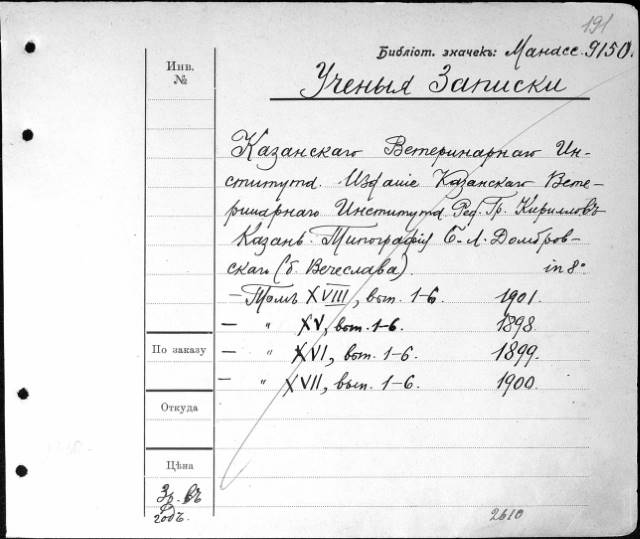 191
Библіот. значекъ: Манассе. 9150.
Инв.
№
Ученыя Записки
Казанскаго Ветеринарнаго Ин-
ститута. Изданіе Казанскаго Вете-
ринарнаго Института Ред. Гр. Кирилловъ
Казань. Типографія Б. Л. Домбров-
скаго (б. Вечеслава). in 8°
— Томъ XVIII, вып. 1-6. 1901.
— " XV, вып. 1-6. 1898.
По заказу
— " XVI, вып. 1-6. 1899.
— " XVII, вып. 1-6. 1900.
Откуда
Цѣна
3р. въ
годъ.
2610